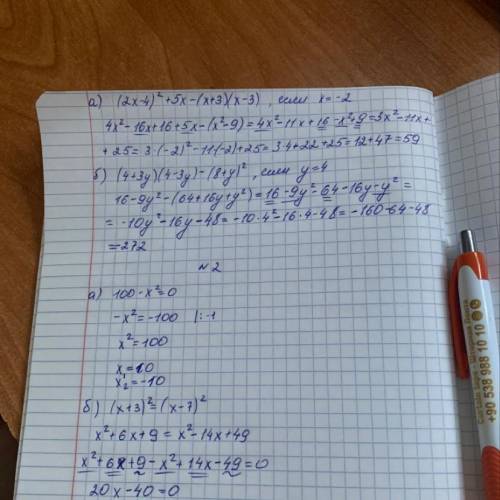 а) (2x-4)²+5x-(x+3)(x-3), если x=-2
4x²-16x+16+5x-(x²-9)=4x²-11x+16-x²+9=3x²-11x+
+25=3·(-2)²-11(-2)+25=3·4+22+25=12+47=59
б) (4+3y)(4-3y)-(8+y)², если y=4
16-9y²-(64+16y+y²)=16-9y²-64-16y-y²=
=-10y²-16y-48=-10·4²-16·4-48=-160-64-48
=272
№2
а) 100-x²=0
-x²=-100 |:-1
x²=100
x₁=10
x₂=-10
б) (x+3)²=(x-7)²
x²+6x+9=x²-14x+49
x²+6x+9-x²+14x-49=0
20x-40=0
+90 538 988 10 11